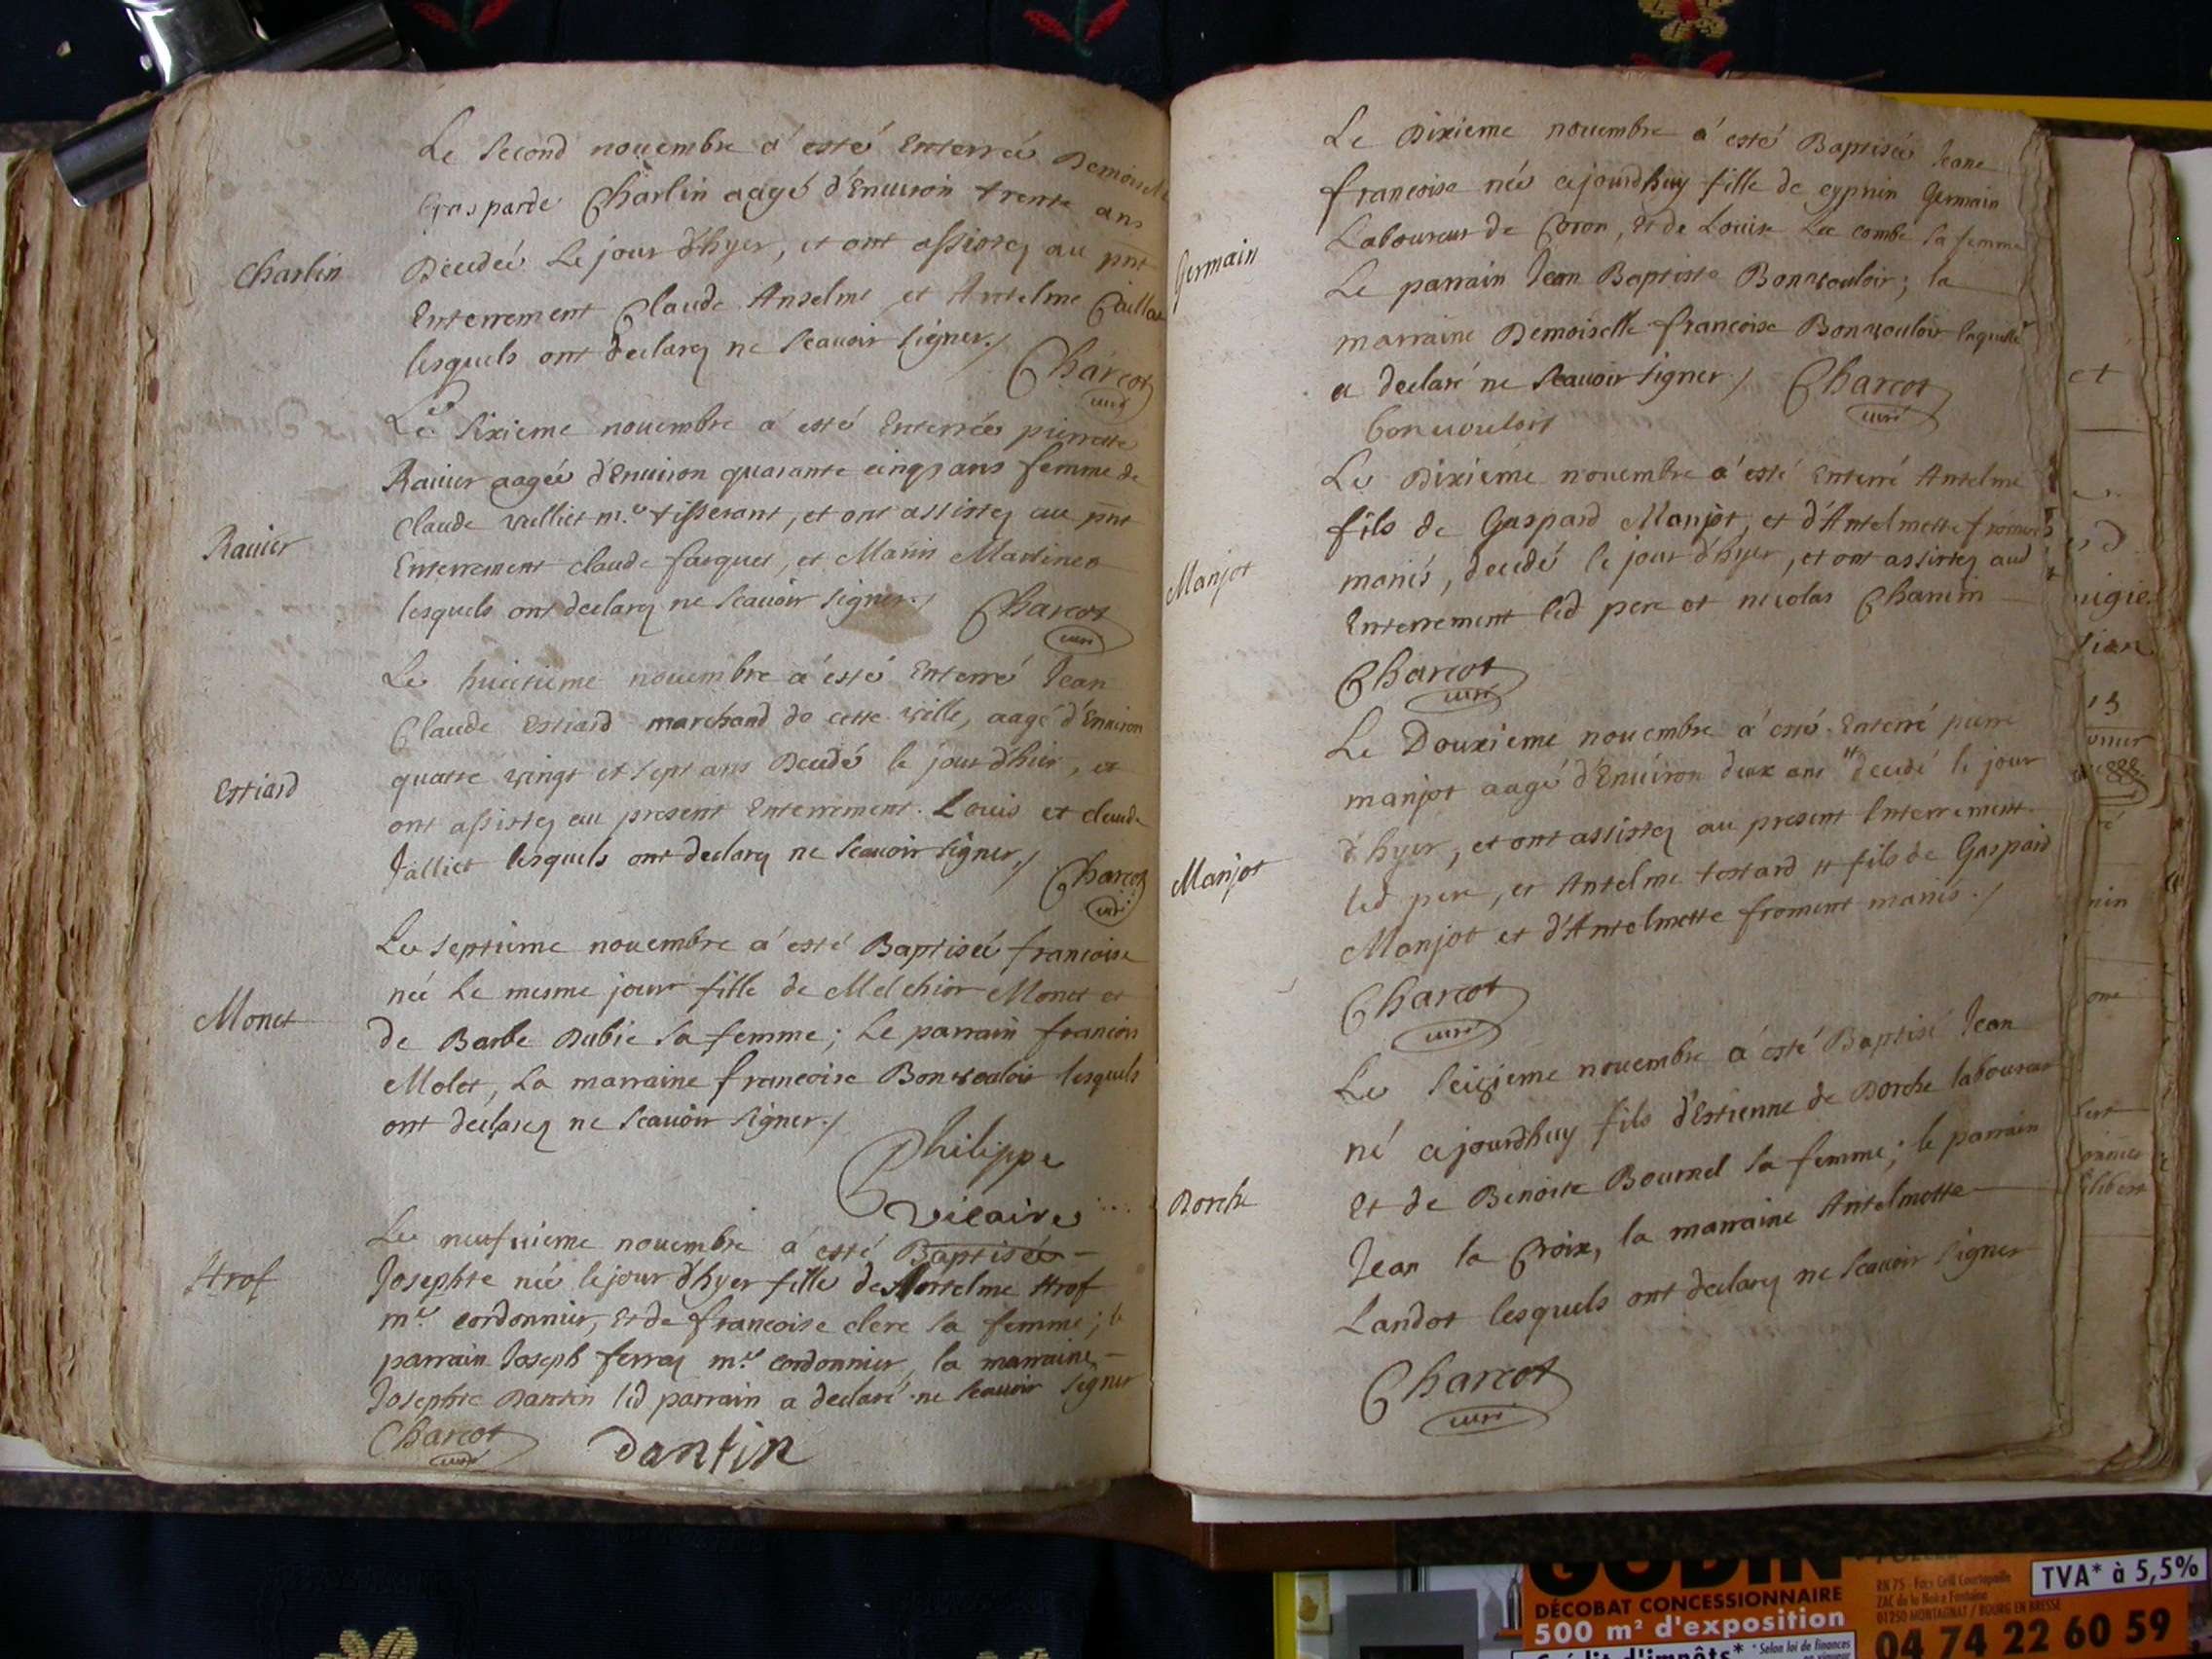 Le second nouembre a esté Enterrée Demoiselle
Gasparde Charlin aagé d'Enuiron trente ans
Charlin
Decedée Le jour d'hyer, et ont assistez au pnt
Enterrement Claude Anselme et Antelme
lesquels ont declarez ne scauoir signer./
Charcot
curé
Le sixieme nouembre a esté Enterrée pierrette
Rauier aagée d'Enuiron quarante cinq ans femme de
Claude vulliet m.e tisserant, et ont assistez au pnt
Rauier
Enterrement claude farques, et Marin Martinen
lesquels ont declarez ne scauoir signer./ Charcot
curé
Le huictieme nouembre a esté Enterré Jean
Claude Estiard marchand de cette ville, aagé d'Enuiron
quatre vingt et sept ans Decedé le jour d'hier, et
Estiard
ont assistez au present Enterrement. Louis et claude
Jalliet lesquels ont declarez ne scauoir signer./ Charcot
curé
Le septieme nouembre a esté Baptisée francoise
née Le mesme jour fille de Melchior Monet et
Monet
de Barbe Dubie sa femme; Le parrain francois
Molet, La marraine francoise Bonvouloir lesquels
ont declarez ne scauoir signer./
Philippe
vicaire
Le neufuieme nouembre a esté Baptisée
Josephte née le jour d'hyer fille de Antelme Strof
Strof
m.e cordonnier, et de francoise clerc sa femme; le
parrain Joseph ferraz m.e cordonnier, la marraine
Josephte Dantin led parrain a declaré ne scauoir signer
Charcot
curé
dantin
Le Dixieme nouembre a esté Baptisée Jeane
francoise née cejourdhuy fille de cyprien Germain
Laboureur de Coron, et de Louise La combe sa femme
Germain
Le parrain Jean Baptiste Bonvouloir; la
marraine Demoiselle francoise Bonvouloir laquelle
a declaré ne scauoir signer./ Charcot
curé
bonuouloir
Le Dixieme nouembre a esté Enterré Antelme
fils de Gaspard Manjot, et d'Antelmette froment
Manjot
mariés, decedé le jour d'hyer, et ont assistez aud
Enterrement led pere et nicolas Chanin
Charcot
curé
Le Douxieme nouembre a esté Enterré pierre
manjot aagé d'Enuiron deux ans # decedé le jour
d'hyer, et ont assistez au present Enterrement
Manjot
led pere, et Antelme testard # fils de Gaspard
Manjot et d'Antelmette froment mariés./
Charcot
curé
Le seizieme nouembre a esté Baptisé Jean
né cejourdhuy fils d'Estienne de Dorche laboureur
Dorche
Et de Benoite Bournel sa femme; le parrain
Jean la Croix, la marraine Antelmette
Landot lesquels ont declarez ne scauoir signer
Charcot
curé
GODIN
DÉCOBAT CONCESSIONNAIRE
500 m² d'exposition
Crédit d'impôts*
* Selon loi de finances
RN 75 - Face Grill Courtepaille
ZAC de la Noire Fontaine
01250 MONTAGNAT / BOURG EN BRESSE
TVA* à 5,5%
04 74 22 60 59